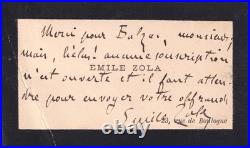 Merci pour Balzac, monsieur;
mais, hélas! aucune souscription
EMILE ZOLA
n'est ouverte et il faut atten-
dre pour envoyer votre offrande.
Emile Zola
23, rue de Boulogne